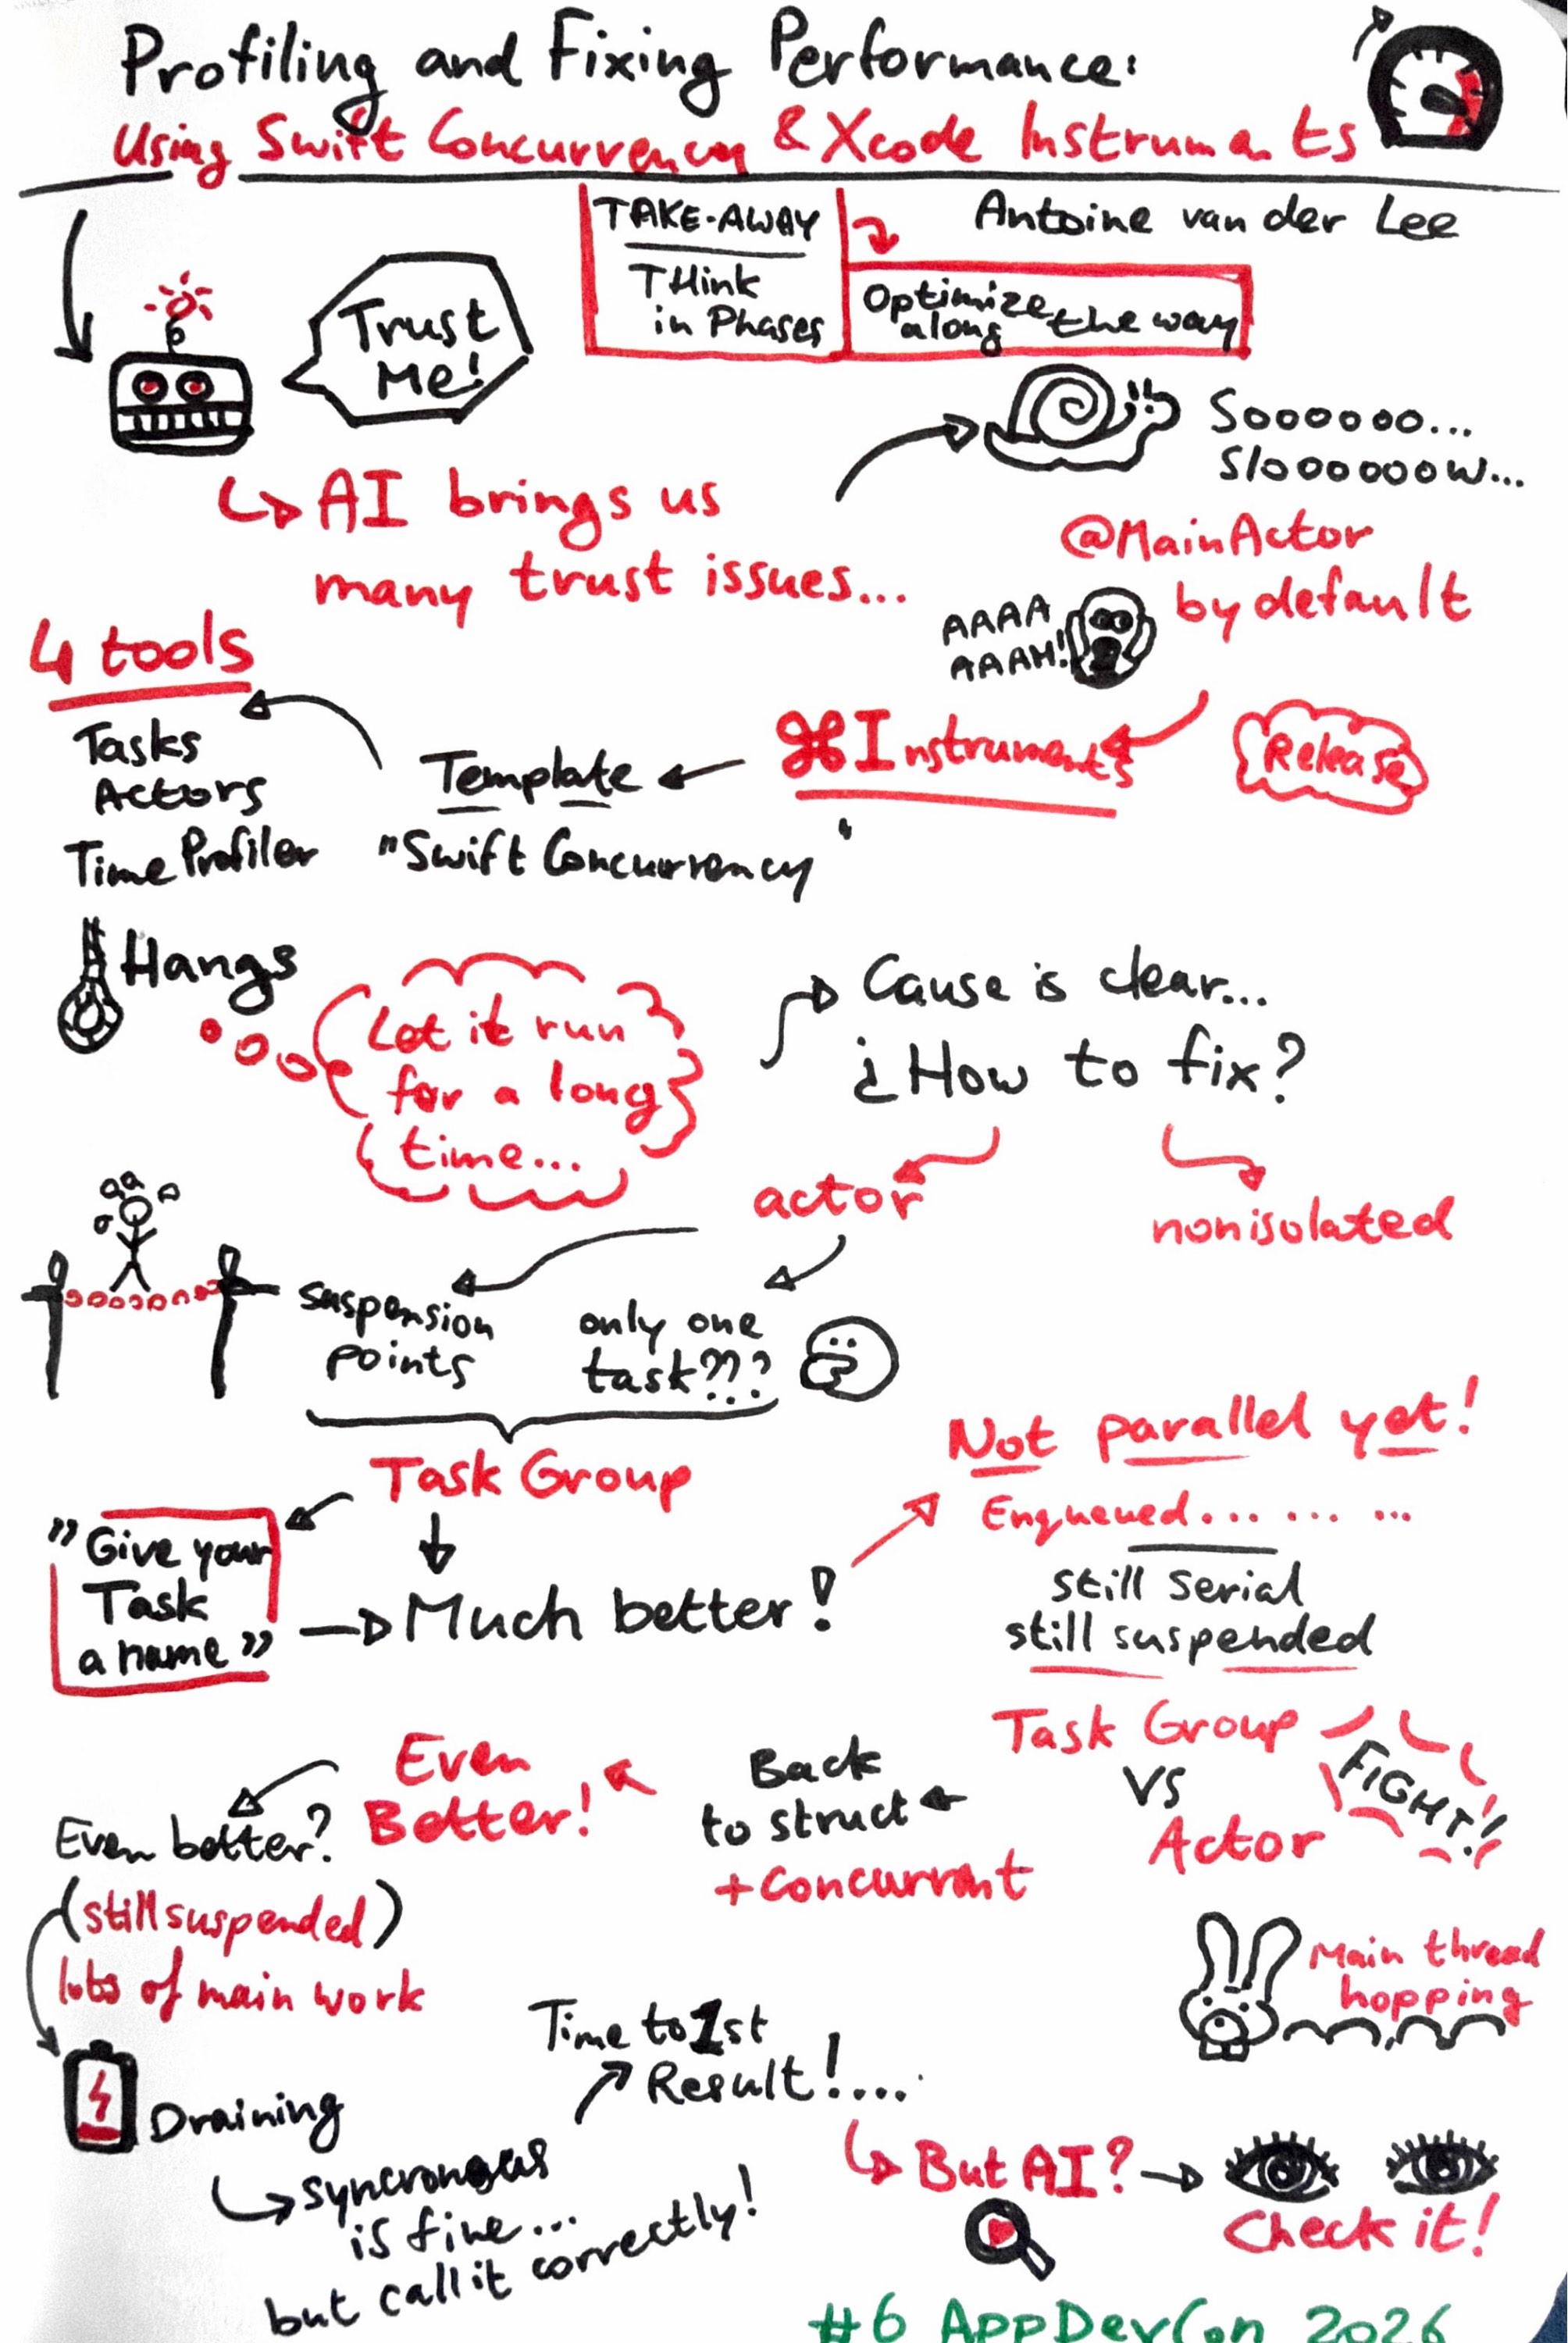 Profiling and Fixing Performance:
Using Swift Concurrency & Xcode Instruments
Antoine van der Lee
TAKE-AWAY
THink
in Phases
Optimize
along the way
Trust
Me!
AI brings us
many trust issues...
Soooooo...
Sloooooow...
@MainActor
by default
AAAA
AAAH!
Release
⌘Instruments
Template
"Swift Concurrency"
4 tools
Tasks
Actors
Time Profiler
Hangs
Let it run
for a long
time...
Cause is clear...
¿How to fix?
actor
nonisolated
suspension
points
only one
task???
Task Group
"Give your
Task
a name"
Much better!
Not parallel yet!
Enqueued... ... ...
still serial
still suspended
Task Group
VS
Actor
FIGHT!!
Back
to struct
+Concurrent
Even
Better!
Even better?
(still suspended)
lots of main work
Main thread
hopping
Draining
syncronous
is fine...
but call it correctly!
Time to 1st
Result!....
But AI?
Check it!
#6 AppDevCon 2026